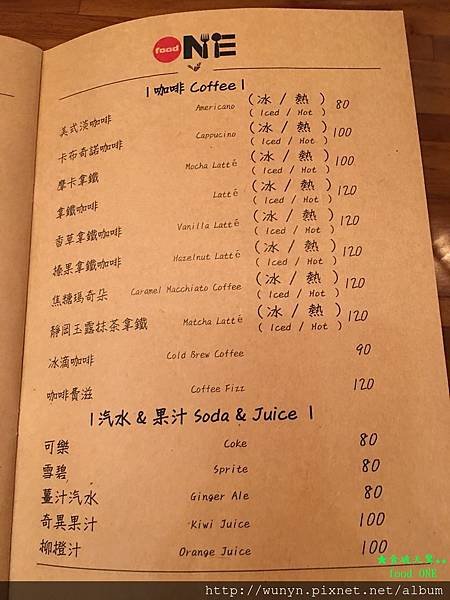 food ONE
| 咖啡 Coffee |
美式淡咖啡 Americano (冰 / 熱) ( Iced / Hot ) 80
卡布奇諾咖啡 Cappucino (冰 / 熱) ( Iced / Hot ) 100
摩卡拿鐵 Mocha Latté (冰 / 熱) ( Iced / Hot ) 100
拿鐵咖啡 Latté (冰 / 熱) ( Iced / Hot ) 120
香草拿鐵咖啡 Vanilla Latté (冰 / 熱) ( Iced / Hot ) 120
榛果拿鐵咖啡 Hazelnut Latté (冰 / 熱) ( Iced / Hot ) 120
焦糖瑪奇朵 Caramel Macchiato Coffee (冰 / 熱) ( Iced / Hot ) 120
靜岡玉露抹茶拿鐵 Matcha Latté (冰 / 熱) ( Iced / Hot ) 120
冰滴咖啡 Cold Brew Coffee 90
咖啡費滋 Coffee Fizz 120
| 汽水 & 果汁 Soda & Juice |
可樂 Coke 80
雪碧 Sprite 80
薑汁汽水 Ginger Ale 80
奇異果汁 Kiwi Juice 100
柳橙汁 Orange Juice 100
food ONE
http://wunyn.pixnet.net/album